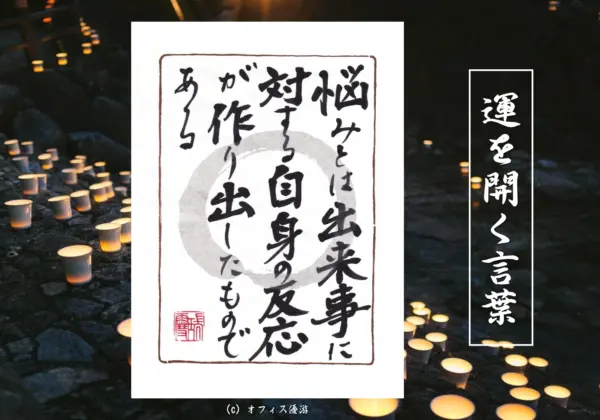 悩みとは出来事に
対する自身の反応
が作り出したもので
ある
運を開く言葉
(C) オフィス優游